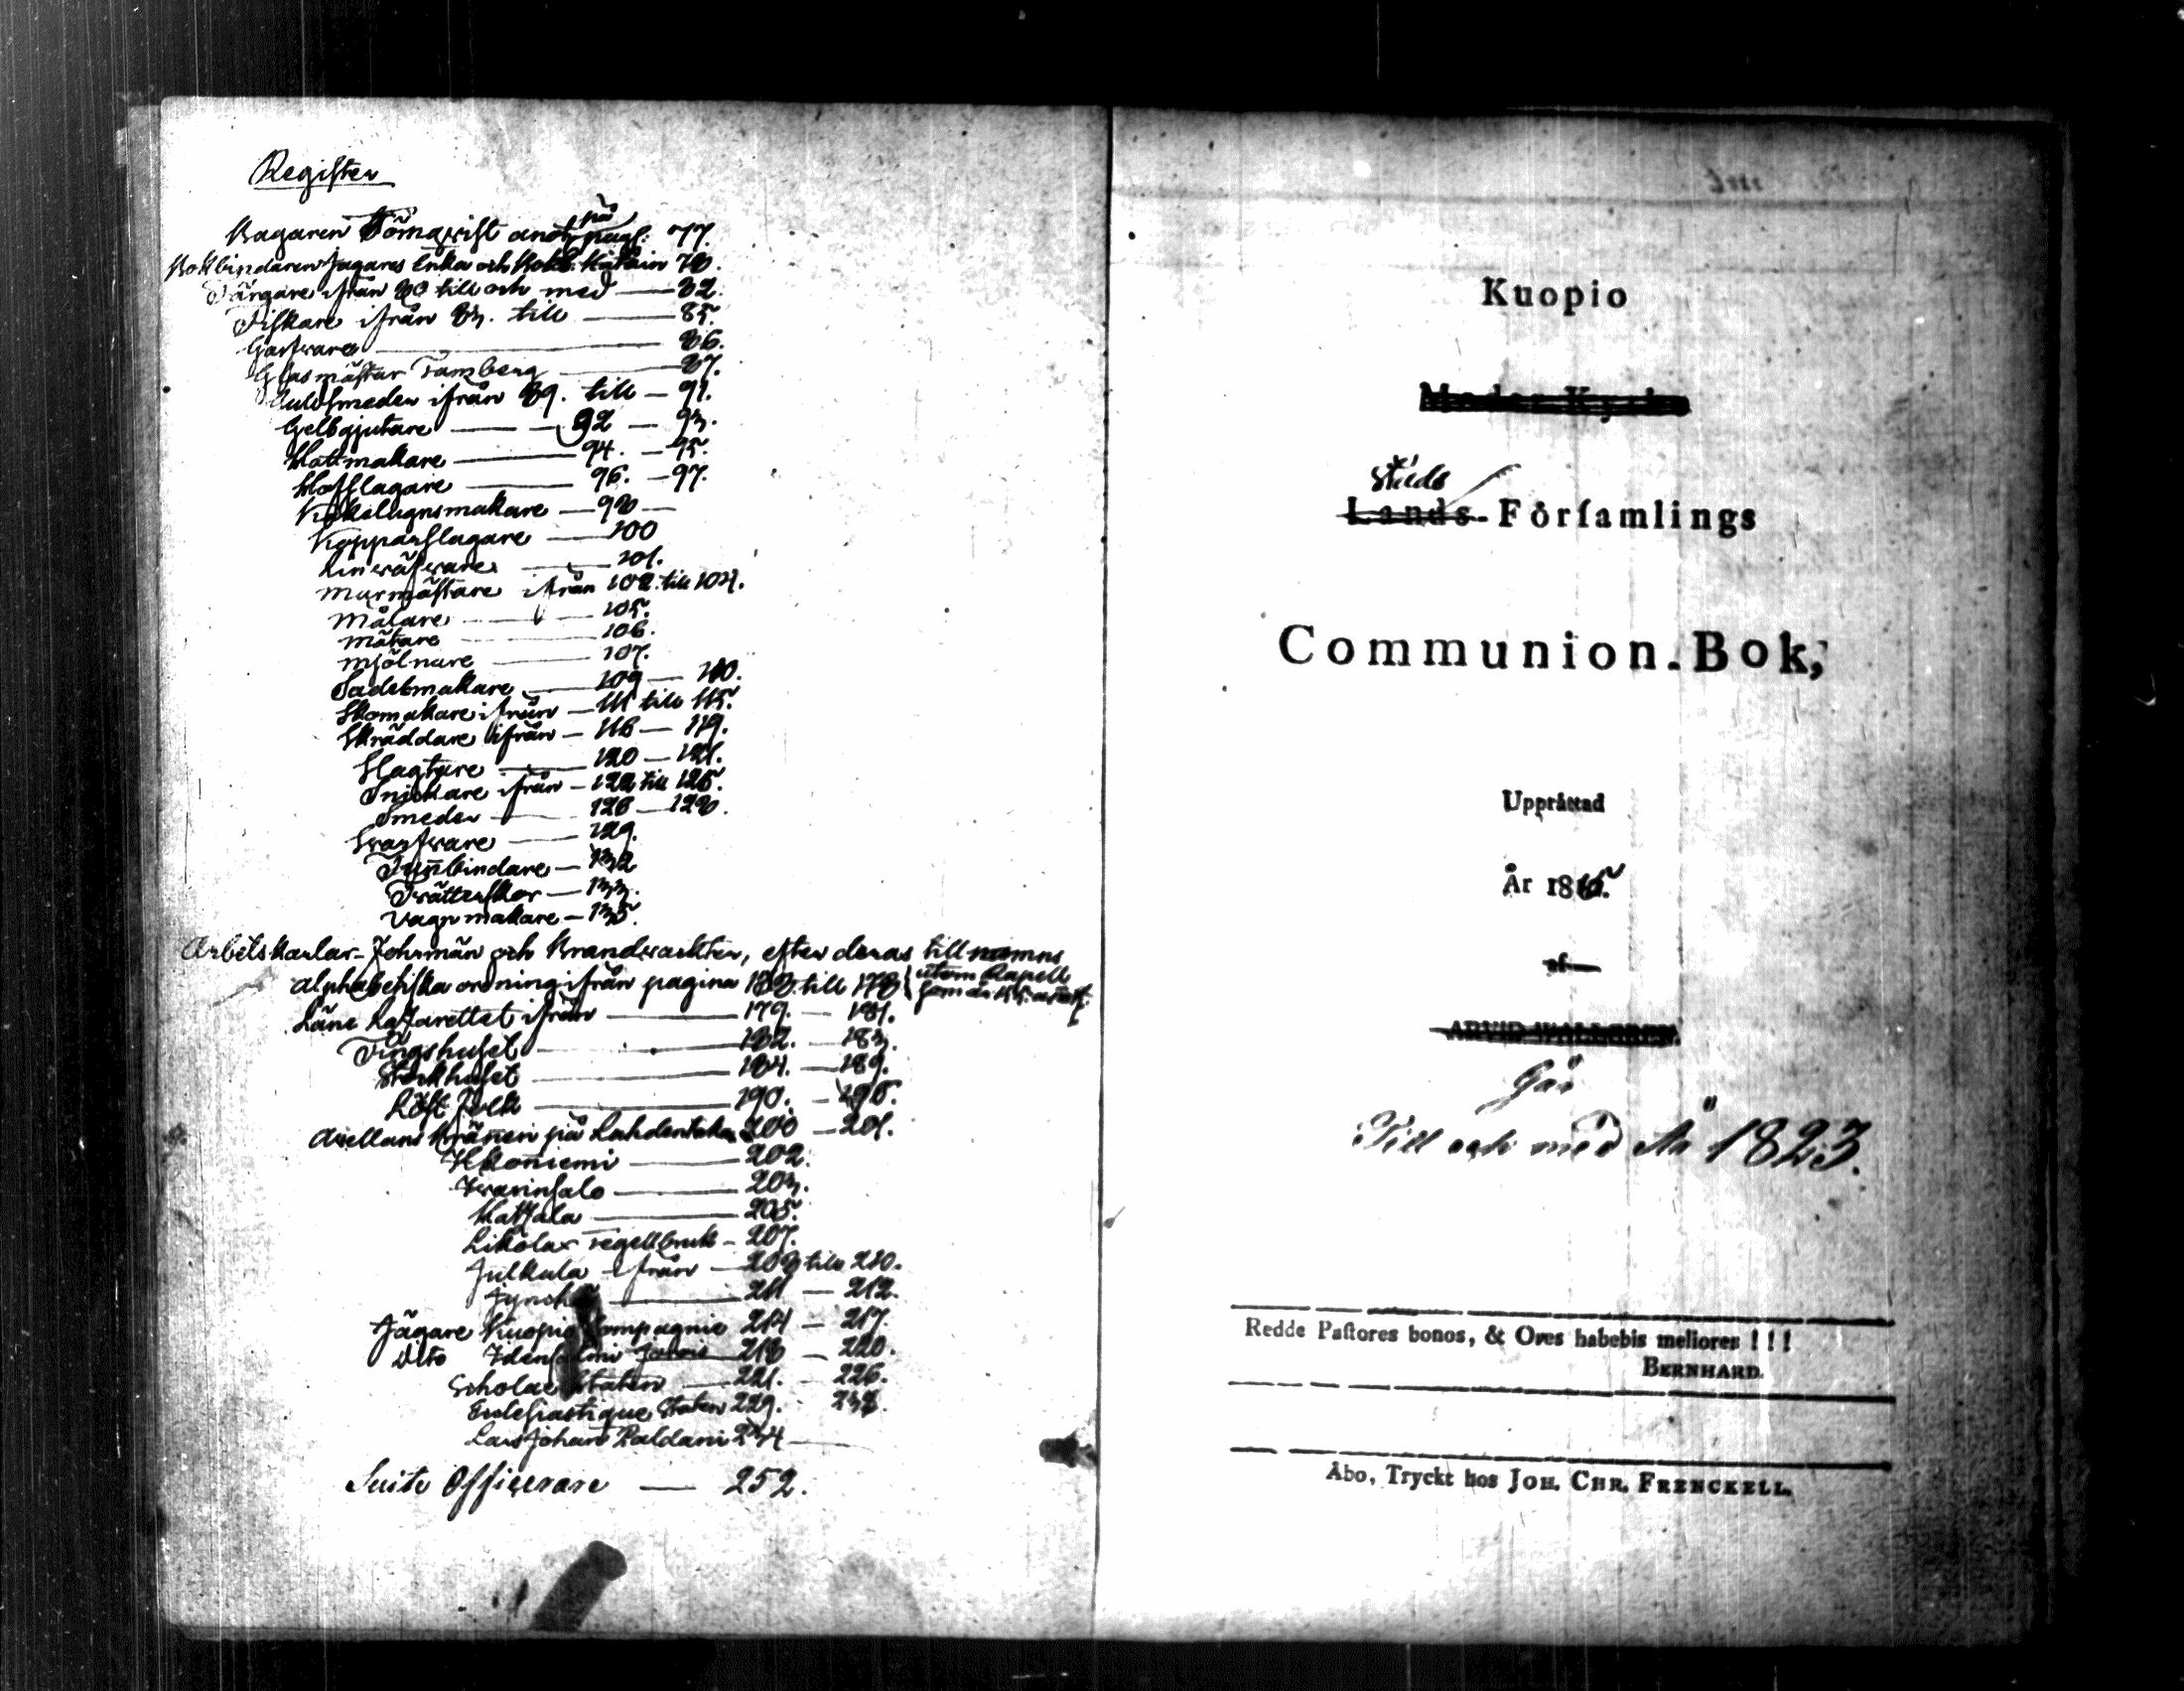 Register
Bagaren Törnqvist anot. på pag: 77.
Bokbindaren Jagares Enka och Bokb: 78.
Färgare ifrån 80 till och med — 82.
Fiskare ifrån 83. till — 85.
Garfvare — 86.
Glasmästar Tamberg — 87.
Guldsmeder ifrån 89. till — 91.
Gelbgjutare — 92 — 93.
Hattmakare — 94. — 95.
Hofslagare — 96. — 97.
Kakelugnsmakare — 98 —
Kopparslagare — 100
Linväfvare — 101.
Murmästare ifrån 102. till 104.
Målare — 105.
Mätare — 106.
Mjölnare — 107.
Sadelmakare — 109 — 110.
Skomakare ifrån — 111 till 115.
Skräddare ifrån — 116 — 119.
Slagtare — 120 — 121.
Snickare ifrån — 122 till 125.
Smeder — 126 — 128.
Svarfvare — 129.
Tunbindare — 132
— 133.
Vagnmakare — 135.
Arbetskarlar- Formän och Brandvackter, efter deras till namns
alphabetiska ordning ifrån pagina till 178 utom Kapell
Läne Lazarettet ifrån — 179. — 181.
Tingshuset — 182. — 183.
Stockhuset — 184. — 189.
Löst folk — 190. — 195.
Kränen på 200 — 201.
Ikoniemi — 202.
Iivarinsalo — 203.
Hatsala — 205.
Likolax Tegelbruk — 207.
Julkula ifrån — 208 till 210.
— 211 — 212.
Jägare Kuopio Compagnie 214 — 217.
Dito Idensalmi 218 — 220.
Scholae Staten — 221. — 226.
Ecclesiastique Staten 229.
Lars Johan Paldani 234 —
Suite Officerare — 252.
Kuopio
Moder-Kyrko
Stads
Lands-Förſamlings
Communion-Bok,
Upprättad
År 1815.
af
ARVID
Går
Till och med År 1823.
Redde Paſtores bonos, & Oves habebis meliores ! ! !
BERNHARD.
Åbo, Tryckt hos JOH. CHR. FRENCKELL.